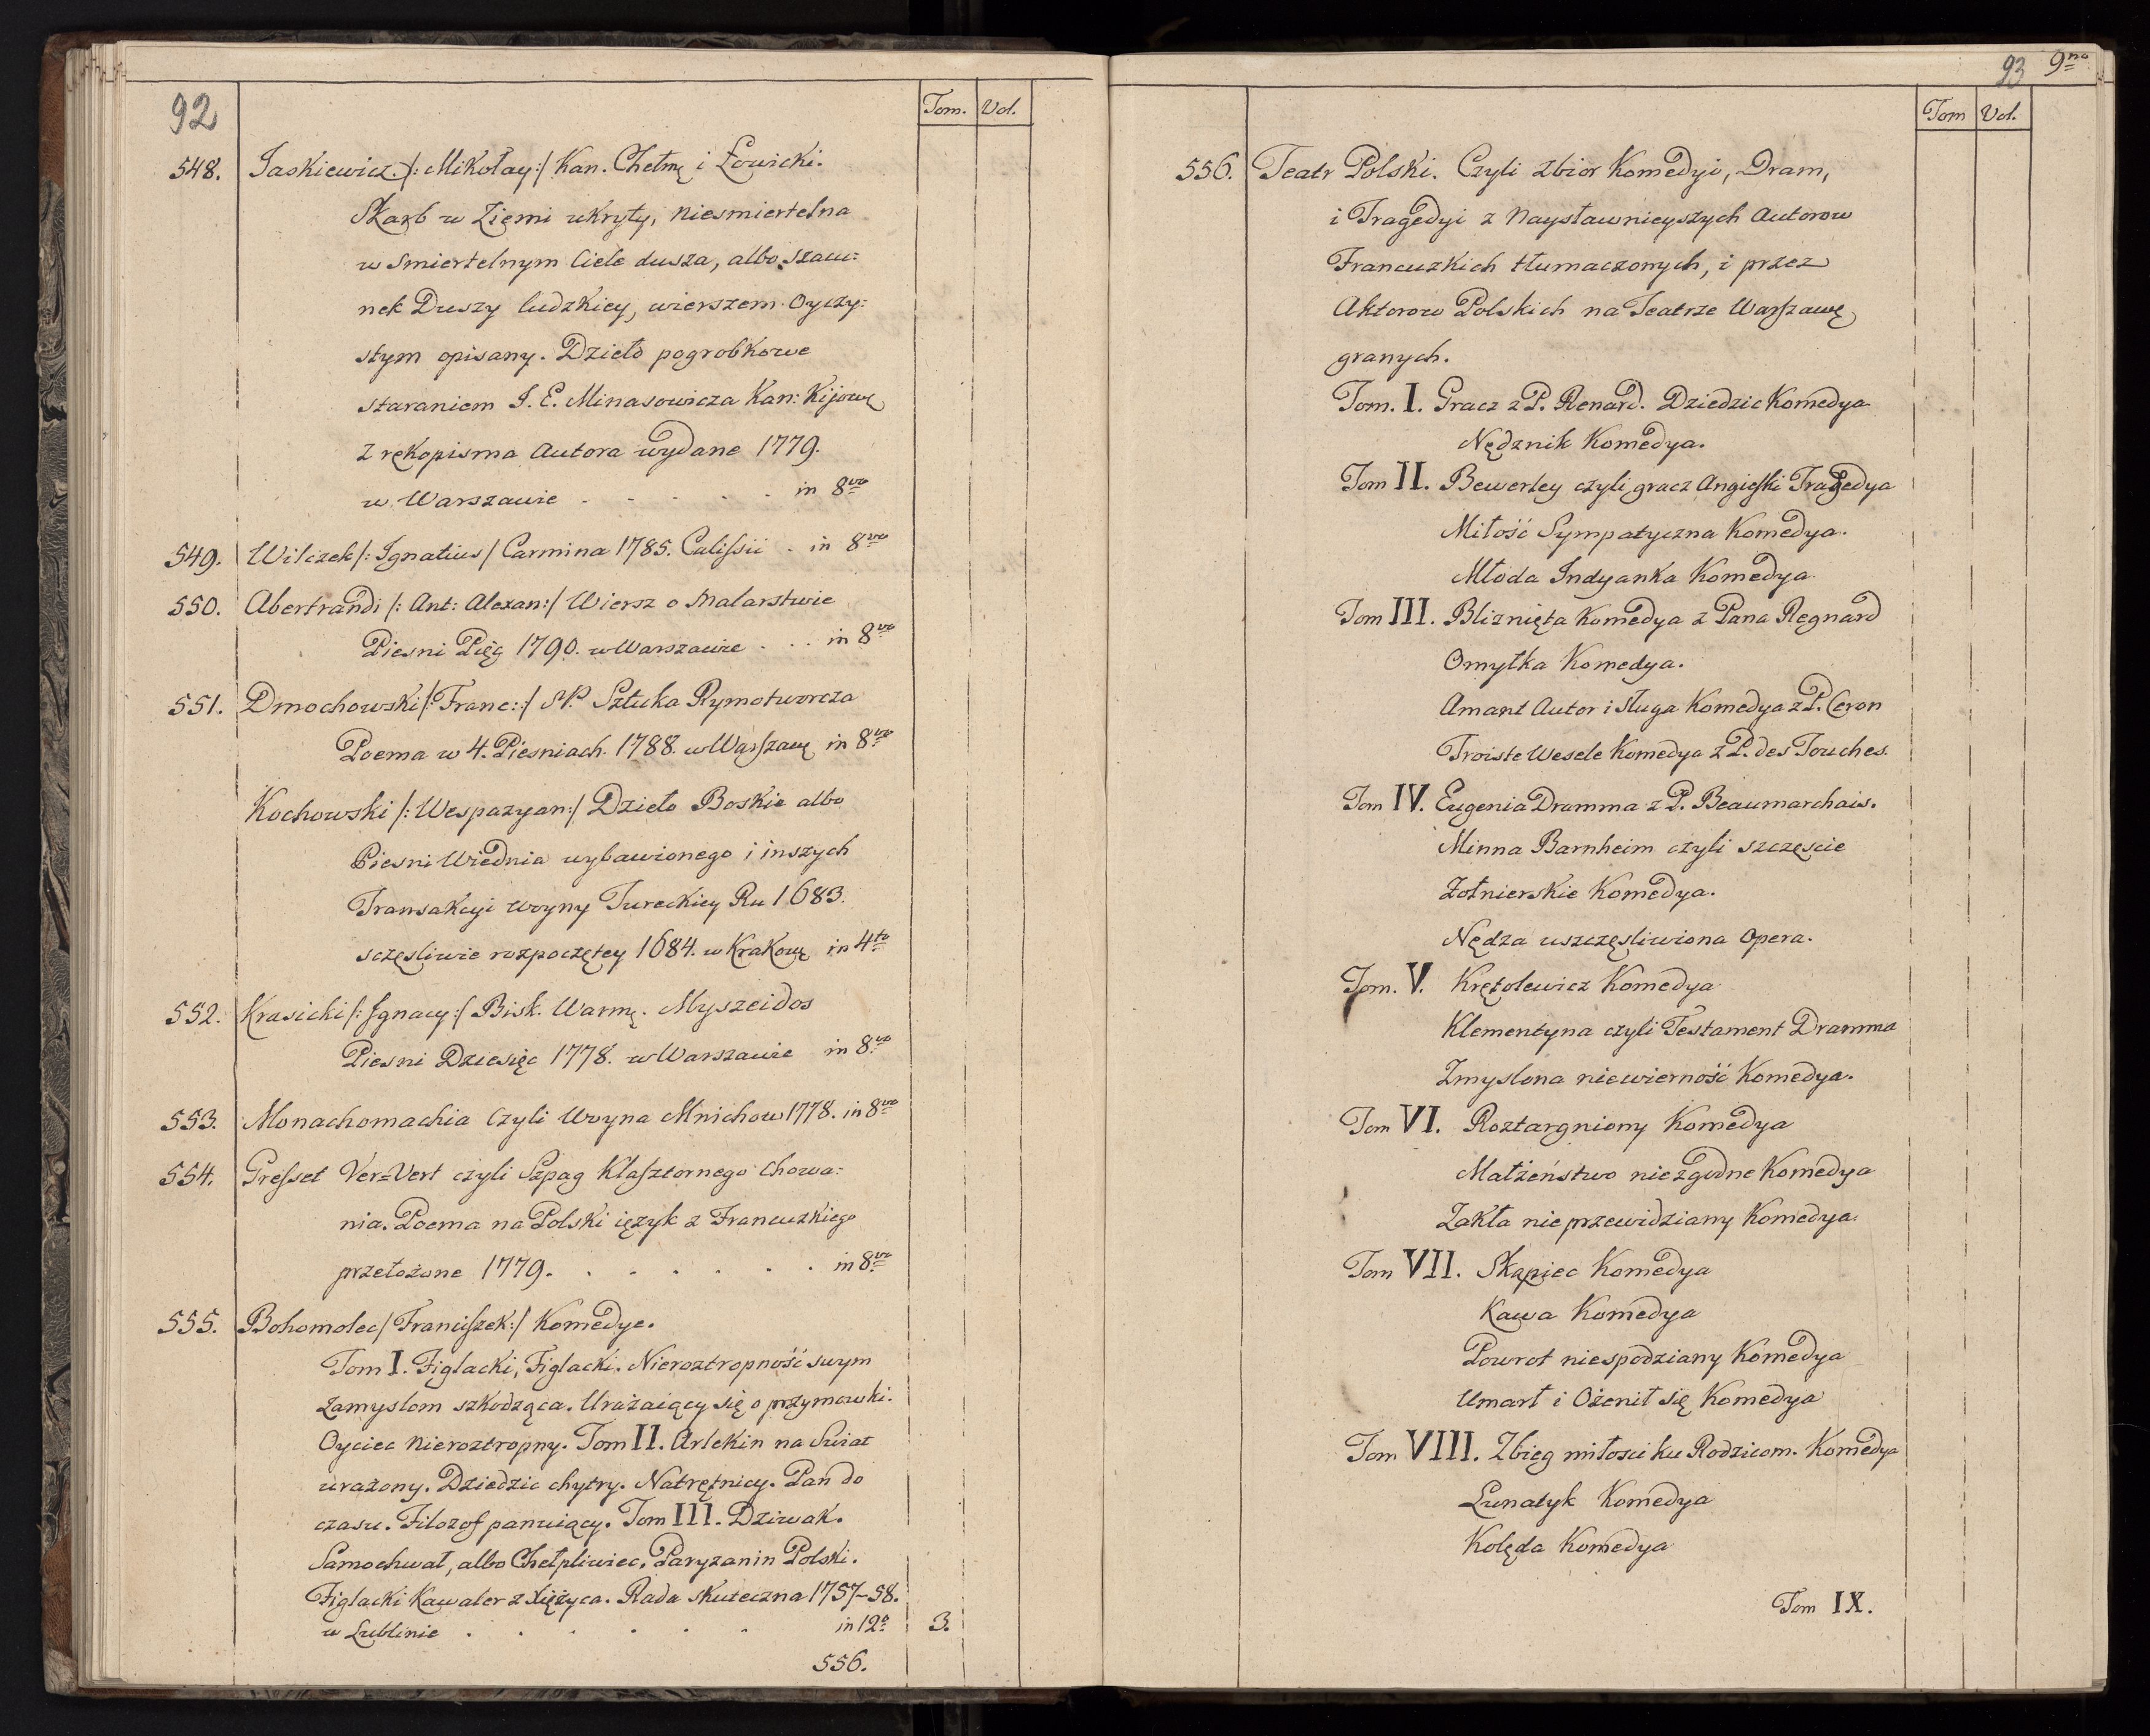 92
Tom. Vol.
548. Jaskiewicz /: Mikołay :/ Kan. Chełmę i Łowicki.
Skarb w Ziemi ukryty, niesmiertelna
w smiertelnym Ciele dusza, albo szacu:
nek Duszy ludzkiey, wierszem Oyczy:
stym opisany. Dzieło pogrobkowe
staraniem J. E. Minasowicza Kan: Kijowę
z rękopisma Autora wydane 1779.
w Warszawie . . . . . in 8vo
549. Wilczek /: Ignatius / Carmina 1785. Calissii . in 8vo
550. Abertrandi /: Ant: Alexan: / Wiersz o Malarstwie
Piesni Pięc 1790. w Warszawie . . . in 8vo
551. Dmochowski /: Franc: :/ S. P. Sztuka Rymotworcza
Poema w 4. Piesniach. 1788. w Warszawę in 8vo
Kochowski /: Wespazyan :/ Dzieło Boskie albo
Piesni Wiednia wybawionego i inszych
Transakcyi woyny Tureckiey Ru 1683.
sczęsliwie rozpoczętey 1684. w Krakowę in 4to
552. Krasicki /: Ignacy :/ Bisk. Warmę. Myszeidos
Piesni Dziesięc 1778. w Warszawie in 8vo
553. Monachomachia Czyli Woyna Mnichow 1778. in 8vo
554. Gresset Ver=Vert czyli Szpag Klasztornego Chowa:
nia. Poema na Polski ięzyk z Francuzkiego
przełożone 1779. . . . . . . in 8vo
555. Bohomolec / Franciszek :/ Komedye.
Tom I. Figlacki, Figlacki. Nieroztropność swym
zamysłom szkodząca. Urażaiący się o przymowki.
Oyciec Nieroztropny. Tom II. Arlekin na Swiat
urażony. Dziedzic chytry. Natrętnicy. Pan do
czasu. Filozof panuiący. Tom III. Dziwak.
Samochwał, albo Chełpliwiec. Paryzanin Polski.
Figlacki Kawaler z Xiężyca. Rada Skuteczna 1757-58.
w Lublinie . . . . . . in 12o 3.
556.
93 9no
Tom Vol.
556. Teatr Polski. Czyli zbior Komedyi, Dram,
i Tragedyi z Naysławnieyszych Autorow
Francuzkich tłumaczonych, i przez
Aktorow Polskich na Teatrze Warszawę
granych.
Tom. I. Gracz z P. Renard. Dziedzic Komedya
Nędznik Komedya.
Tom II. Bewerley czyli gracz Angielski Tragedya
Miłość Sympatyczna Komedya.
Młoda Indyanka Komedya.
Tom III. Bliznięta Komedya z Pana Regnard
Omyłka Komedya.
Amant Autor i sługa Komedya z P. Ceron
Troiste Wesele Komedya z P. des Touches.
Tom IV. Eugenia Dramma z P. Beaumarchais.
Minna Barnheim czyli szczęscie
Żołnierskie Komedya.
Nędza uszczęsliwiona Opera.
Tom. V. Krętolewicz Komedya
Klementyna czyli Testament Dramma
Zmyslona niewierność Komedya.
Tom VI. Roztargniony Komedya
Małżeństwo niezgodne Komedya
Zakła nieprzewidziany Komedya.
Tom VII. Skąpiec Komedya
Kawa Komedya
Powrot niespodziany Komedya
Umarł i Ożenił się Komedya
Tom VIII. Zbieg miłosci ku Rodzicom. Komedya
Lunatyk Komedya
Kolęda Komedya
Tom IX.